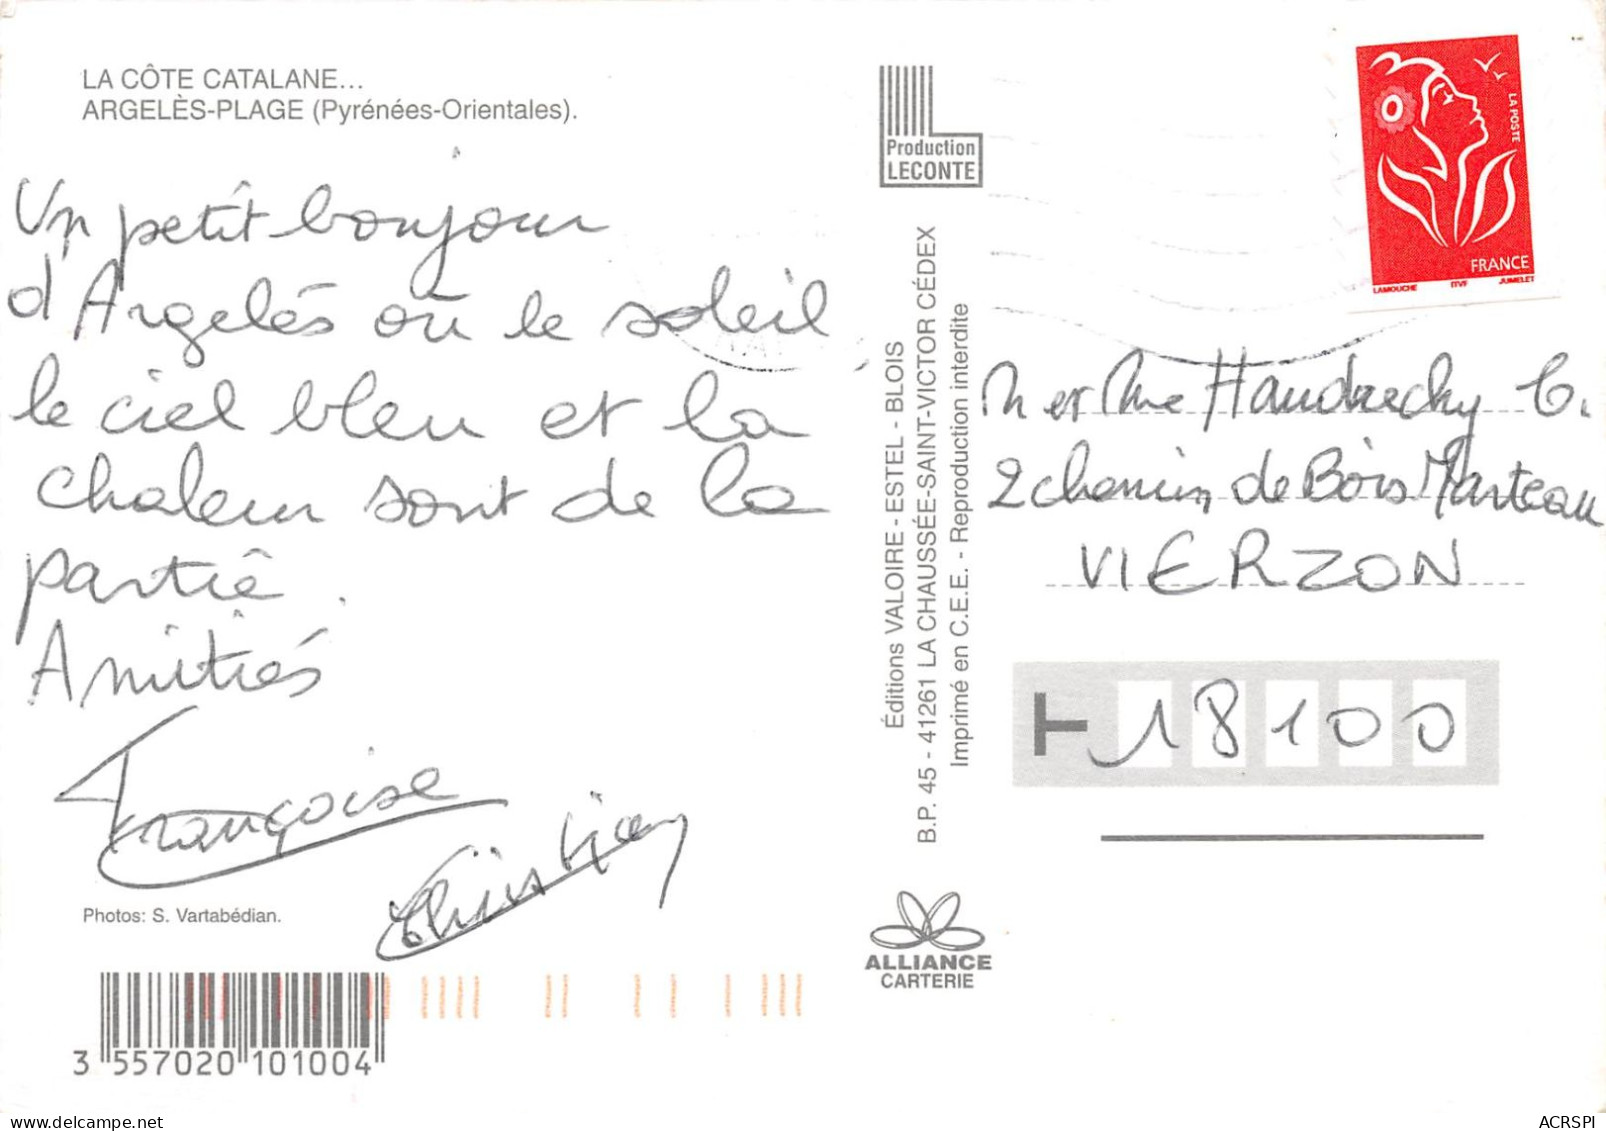 LA CÔTE CATALANE...
ARGELÈS-PLAGE (Pyrénées-Orientales).
Un petit bonjour
d'Argelès où le soleil
le ciel bleu et la
chaleur sont de la
partie.
Amitiés
Françoise
Christian
Photos: S. Vartabédian.
3 557020 101004
Production
LECONTE
Éditions VALOIRE-ESTEL - BLOIS
B.P. 45 - 41261 LA CHAUSSÉE-SAINT-VICTOR CÉDEX
Imprimé en C.E.E. - Reproduction interdite
ALLIANCE
CARTERIE
LA POSTE
FRANCE
LAMOUCHE ITVF JUMELET
M et Mme Haudrechy C.
2 chemin de Bois Marteau
VIERZON
18100
ACRSPI